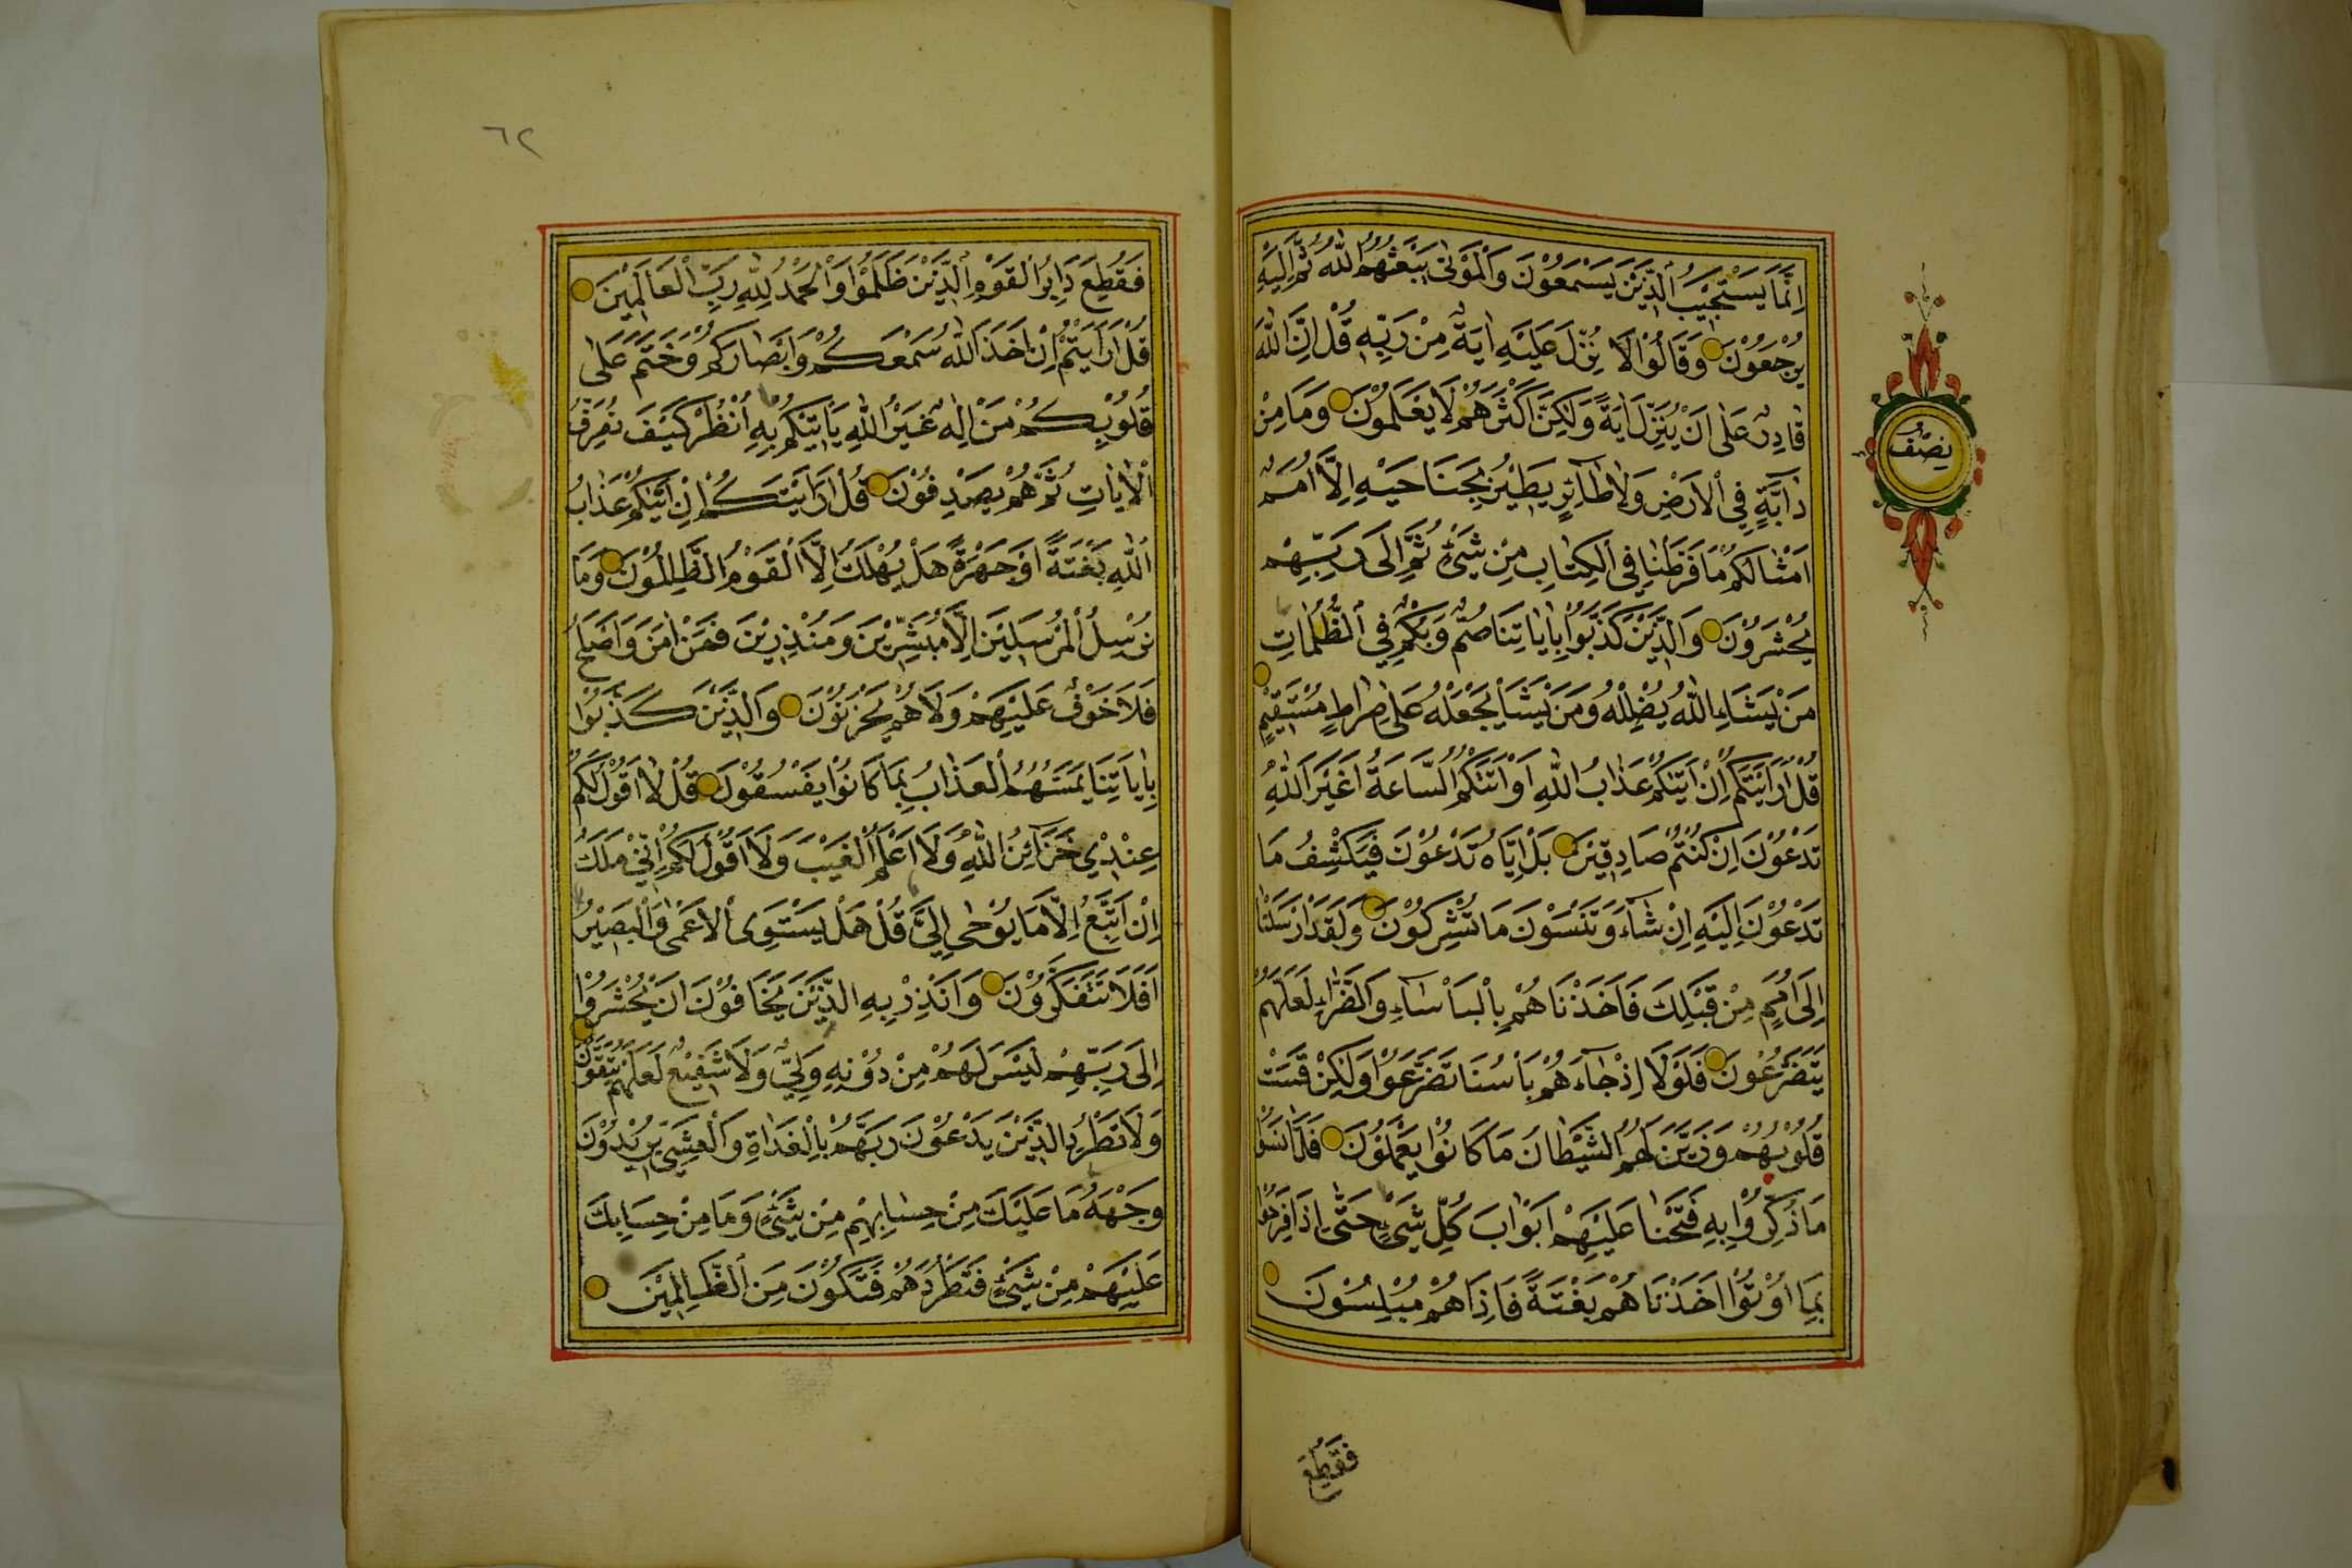 اِنَّمَا يَسْتَجِيْبُ الَّذِيْنَ يَسْمَعُوْنَ وَالْمَوْتٰى يَبْعَثُهُمُ اللّٰهُ ثُمَّ اِلَيْهِ
يُرْجَعُوْنَ وَقَالُوْا لَوْلَا نُزِّلَ عَلَيْهِ اٰيَةٌ مِنْ رَبِّهٖ قُلْ اِنَّ اللّٰهَ
قَادِرٌ عَلٰى اَنْ يُنَزِّلَ اٰيَةً وَلٰكِنَّ اَكْثَرَهُمْ لَا يَعْلَمُوْنَ وَمَا مِنْ
دَآبَّةٍ فِي الْاَرْضِ وَلَا طَآئِرٍ يَطِيْرُ بِجَنَاحَيْهِ اِلَّا اُمَمٌ
اَمْثَالُكُمْ مَا فَرَّطْنَا فِي الْكِتَابِ مِنْ شَيْءٍ ثُمَّ اِلٰى رَبِّهِمْ
يُحْشَرُوْنَ وَالَّذِيْنَ كَذَّبُوْا بِاٰيَاتِنَا صُمٌّ وَبُكْمٌ فِي الظُّلُمَاتِ
مَنْ يَشَاِ اللّٰهُ يُضْلِلْهُ وَمَنْ يَشَاْ يَجْعَلْهُ عَلٰى صِرَاطٍ مُسْتَقِيْمٍ
قُلْ اَرَاَيْتَكُمْ اِنْ اَتٰيكُمْ عَذَابُ اللّٰهِ اَوْ اَتَتْكُمُ السَّاعَةُ اَغَيْرَ اللّٰهِ
تَدْعُوْنَ اِنْ كُنْتُمْ صَادِقِيْنَ بَلْ اِيَّاهُ تَدْعُوْنَ فَيَكْشِفُ مَا
تَدْعُوْنَ اِلَيْهِ اِنْ شَآءَ وَتَنْسَوْنَ مَا تُشْرِكُوْنَ وَلَقَدْ اَرْسَلْنَا
اِلٰى اُمَمٍ مِنْ قَبْلِكَ فَاَخَذْنَاهُمْ بِالْبَاْسَآءِ وَالضَّرَّآءِ لَعَلَّهُمْ
يَتَضَرَّعُوْنَ فَلَوْلَا اِذْ جَآءَهُمْ بَاْسُنَا تَضَرَّعُوْا وَلٰكِنْ قَسَتْ
قُلُوْبُهُمْ وَزَيَّنَ لَهُمُ الشَّيْطَانُ مَا كَانُوْا يَعْمَلُوْنَ فَلَمَّا نَسُوْا
مَا ذُكِّرُوْا بِهٖ فَتَحْنَا عَلَيْهِمْ اَبْوَابَ كُلِّ شَيْءٍ حَتّٰى اِذَا فَرِحُوْا
بِمَا اُوْتُوْا اَخَذْنَاهُمْ بَغْتَةً فَاِذَا هُمْ مُبْلِسُوْنَ
فَقُطِعَ
نِصْفُ
٦٢
فَقُطِعَ دَابِرُ الْقَوْمِ الَّذِيْنَ ظَلَمُوْا وَالْحَمْدُ لِلّٰهِ رَبِّ الْعَالَمِيْنَ
قُلْ اَرَاَيْتُمْ اِنْ اَخَذَ اللّٰهُ سَمْعَكُمْ وَاَبْصَارَكُمْ وَخَتَمَ عَلٰى
قُلُوْبِكُمْ مَنْ اِلٰهٌ غَيْرُ اللّٰهِ يَاْتِيْكُمْ بِهٖ اُنْظُرْ كَيْفَ نُصَرِّفُ
الْاٰيَاتِ ثُمَّ هُمْ يَصْدِفُوْنَ قُلْ اَرَاَيْتَكُمْ اِنْ اَتٰيكُمْ عَذَابُ
اللّٰهِ بَغْتَةً اَوْ جَهْرَةً هَلْ يُهْلَكُ اِلَّا الْقَوْمُ الظَّالِمُوْنَ وَمَا
نُرْسِلُ الْمُرْسَلِيْنَ اِلَّا مُبَشِّرِيْنَ وَمُنْذِرِيْنَ فَمَنْ اٰمَنَ وَاَصْلَحَ
فَلَا خَوْفٌ عَلَيْهِمْ وَلَا هُمْ يَحْزَنُوْنَ وَالَّذِيْنَ كَذَّبُوْا
بِاٰيَاتِنَا يَمَسُّهُمُ الْعَذَابُ بِمَا كَانُوْا يَفْسُقُوْنَ قُلْ لَا اَقُوْلُ لَكُمْ
عِنْدِيْ خَزَآئِنُ اللّٰهِ وَلَا اَعْلَمُ الْغَيْبَ وَلَا اَقُوْلُ لَكُمْ اِنِّيْ مَلَكٌ
اِنْ اَتَّبِعُ اِلَّا مَا يُوْحٰى اِلَيَّ قُلْ هَلْ يَسْتَوِى الْاَعْمٰى وَالْبَصِيْرُ
اَفَلَا تَتَفَكَّرُوْنَ وَاَنْذِرْ بِهِ الَّذِيْنَ يَخَافُوْنَ اَنْ يُحْشَرُوْا
اِلٰى رَبِّهِمْ لَيْسَ لَهُمْ مِنْ دُوْنِهٖ وَلِيٌّ وَلَا شَفِيْعٌ لَعَلَّهُمْ يَتَّقُوْنَ
وَلَا تَطْرُدِ الَّذِيْنَ يَدْعُوْنَ رَبَّهُمْ بِالْغَدَاةِ وَالْعَشِيِّ يُرِيْدُوْنَ
وَجْهَهُ مَا عَلَيْكَ مِنْ حِسَابِهِمْ مِنْ شَيْءٍ وَمَا مِنْ حِسَابِكَ
عَلَيْهِمْ مِنْ شَيْءٍ فَتَطْرُدَهُمْ فَتَكُوْنَ مِنَ الظَّالِمِيْنَ